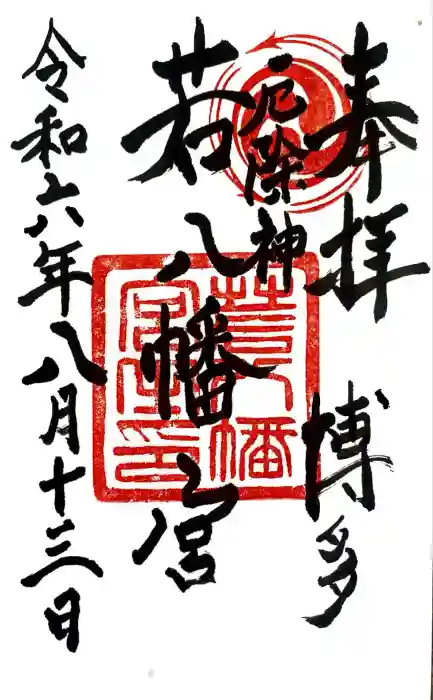 奉拝 博多
厄除神
若八幡宮
令和六年八月十三日
若八幡
宮之印